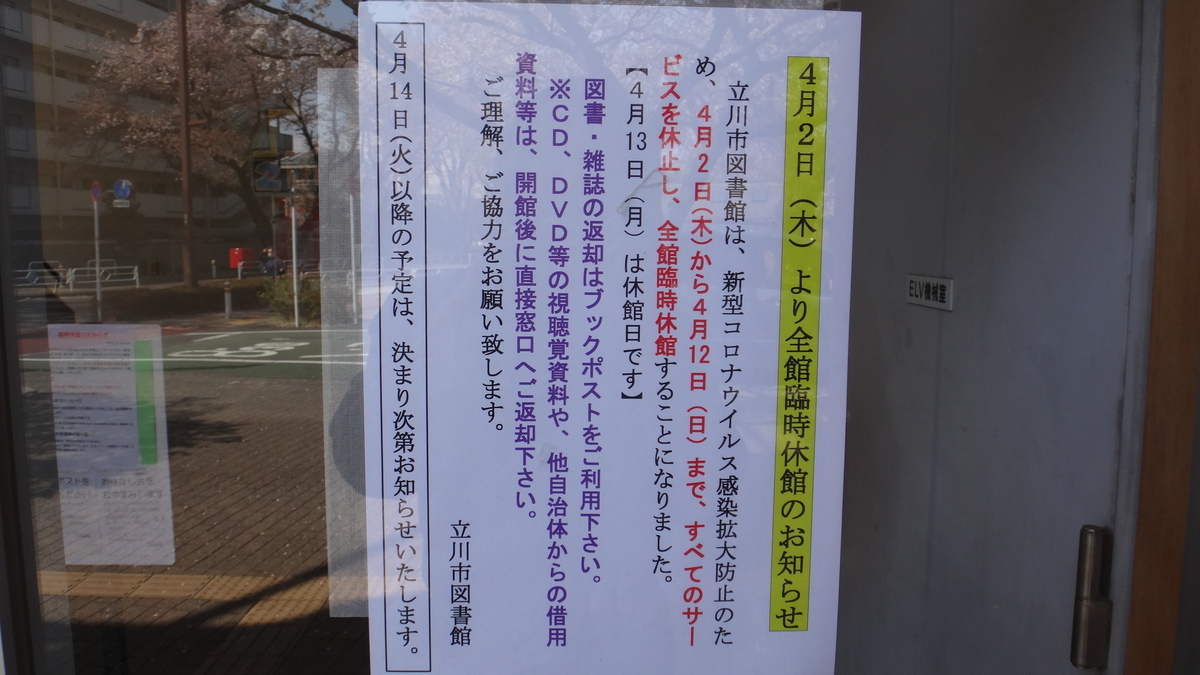 4月2日（木）より全館臨時休館のお知らせ
立川市図書館は、新型コロナウイルス感染拡大防止のた
め、4月2日（木）から4月12日（日）まで、すべてのサー
ビスを休止し、全館臨時休館することになりました。
【4月13日（月）は休館日です】
図書・雑誌の返却はブックポストをご利用下さい。
※CD、DVD等の視聴覚資料や、他自治体からの借用
資料等は、開館後に直接窓口へご返却下さい。
ご理解、ご協力をお願い致します。
立川市図書館
4月14日（火）以降の予定は、決まり次第お知らせいたします。
ELV機械室